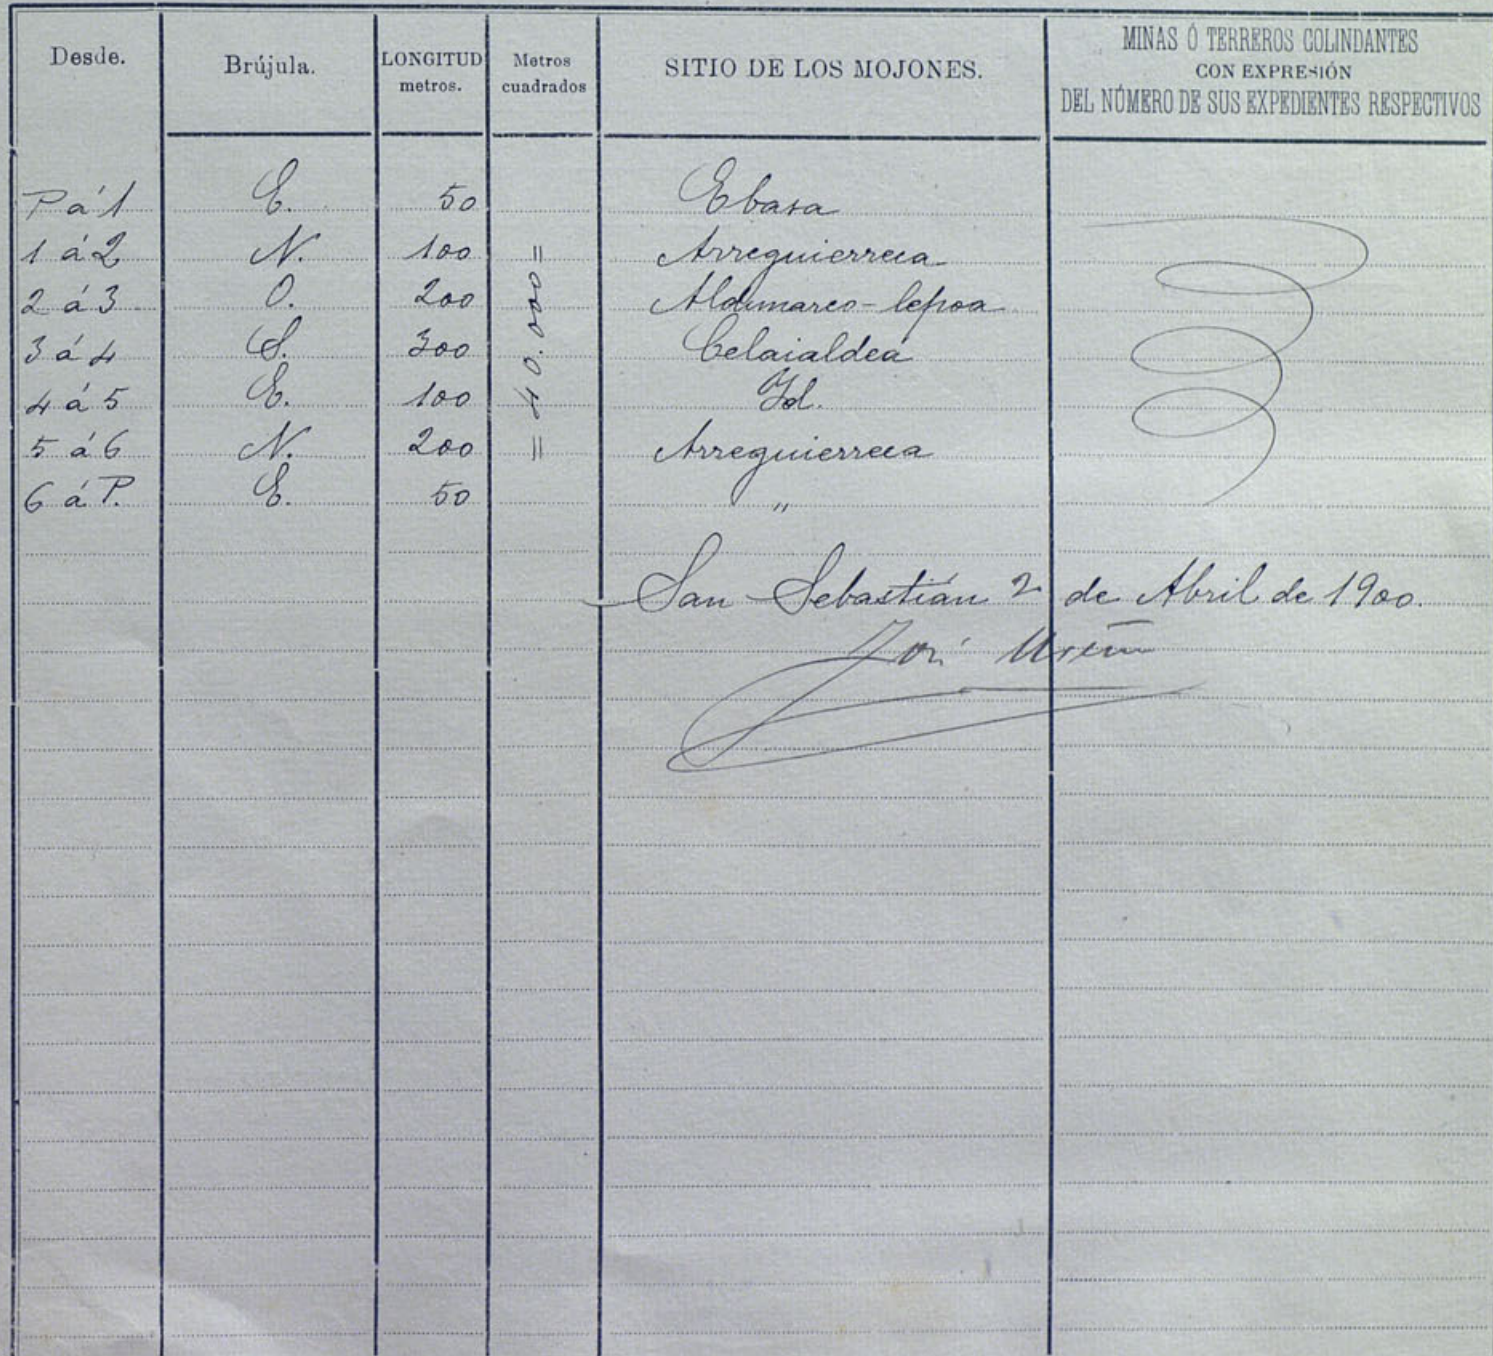 Desde. Brújula. LONGITUD metros. Metros cuadrados SITIO DE LOS MOJONES. MINAS Ó TERREROS COLINDANTES CON EXPRESIÓN DEL NÚMERO DE SUS EXPEDIENTES RESPECTIVOS
P á 1 E. 50 Ebasa
1 á 2 N. 100 Arreguierreca
2 á 3 O. 200
3 á 4 S. 300 Celaialdea
4 á 5 E. 100 Id.
5 á 6 N. 200 Arreguierreca
6 á P. E. 50 "
= 40.000 =
San Sebastián 2 de Abril de 1900.
José